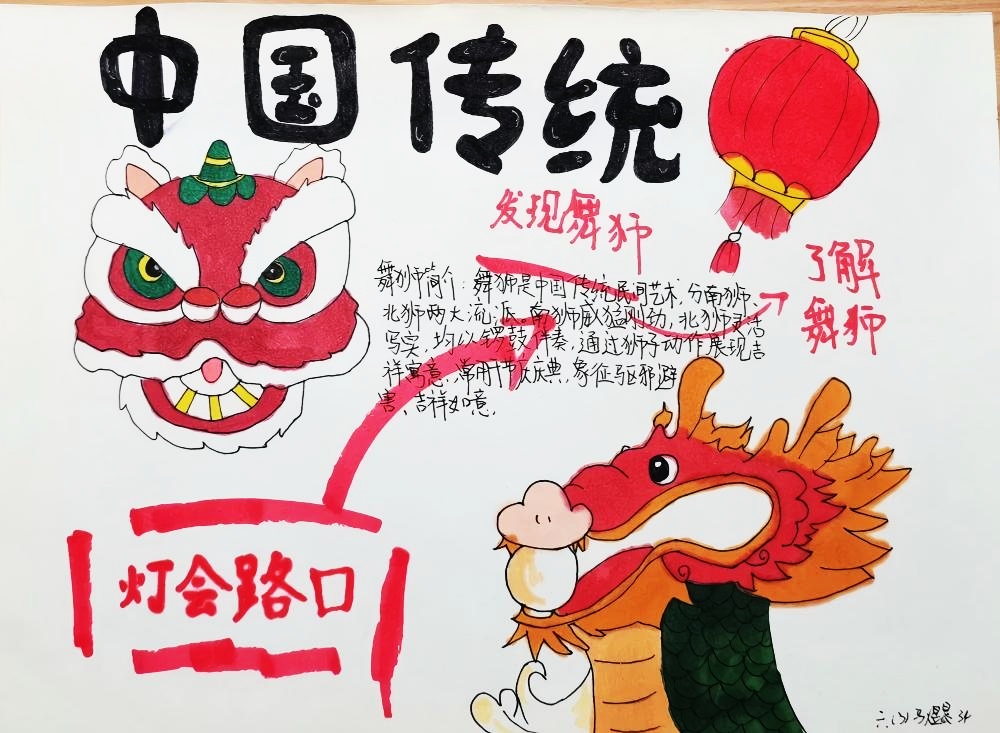 中国传统
发现舞狮
了解
舞狮
舞狮简介：舞狮是中国传统民间艺术，分南狮、
北狮两大流派。南狮威猛刚劲，北狮灵活
写实，均以锣鼓伴奏，通过狮子动作展现吉
祥寓意，常用于节庆庆典，象征驱邪避
害、吉祥如意。
灯会路口